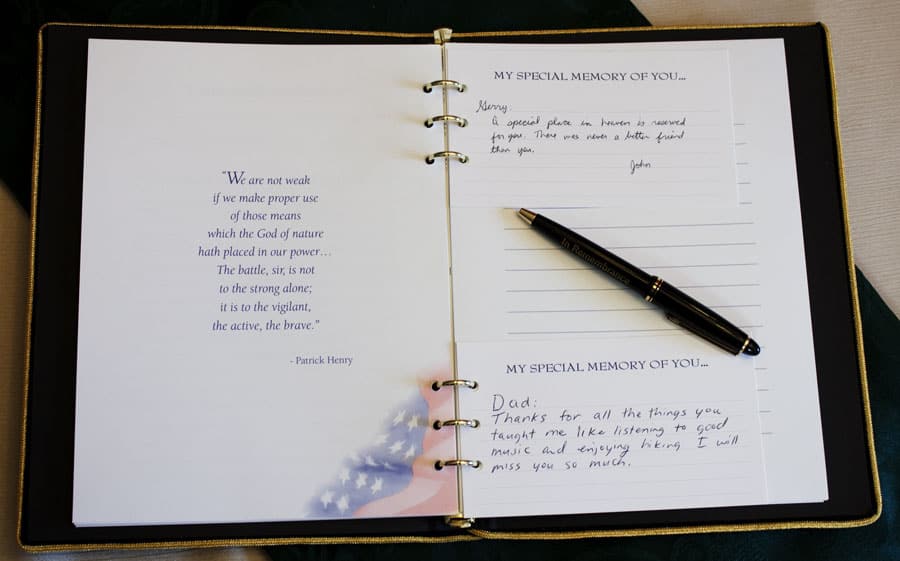 "We are not weak
if we make proper use
of those means
which the God of nature
hath placed in our power…
The battle, sir, is not
to the strong alone;
it is to the vigilant,
the active, the brave."
- Patrick Henry
MY SPECIAL MEMORY OF YOU...
Gerry:
A special place in heaven is reserved
for you. There was never a better friend
than you.
John
In Remembrance
MY SPECIAL MEMORY OF YOU...
Dad:
Thanks for all the things you
taught me like listening to good
music and enjoying hiking I will
miss you so much.